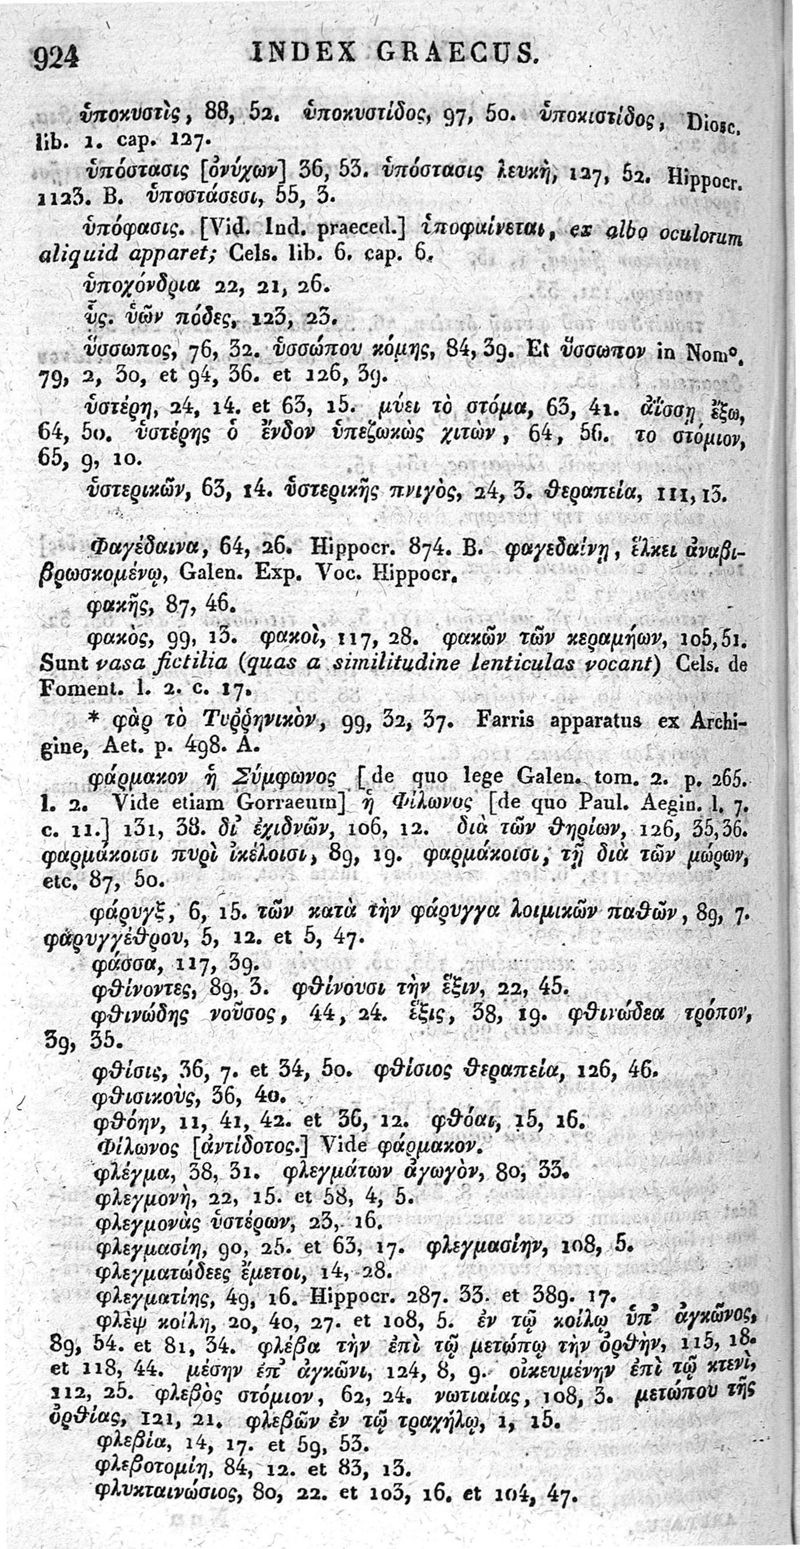 924 INDEX GRAECUS.
ὑποκυστὶς, 88, 52. ὑποκυστίδος, 97, 50. ὑποκιστίδος, Diosc.
lib. 1. cap. 127.
ὑπόστασις [ὀνύχων] 36, 53. ὑπόστασις λευκὴ, 127, 52. Hippocr.
1123. B. ὑποστάσεσι, 55, 3.
ὑπόφασις. [Vid. Ind. praeced.] ὑποφαίνεται, ex albo oculorum
aliquid apparet; Cels. lib. 6. cap. 6.
ὑποχόνδρια 22, 21, 26.
ὗς. ὑῶν πόδες, 123, 23.
ὕσσωπος, 76, 32. ὑσσώπου κόμης, 84, 39. Et ὕσσωπον in Nomº.
79, 2, 30, et 94, 36. et 126, 39.
ὑστέρη, 24, 14. et 63, 15. μύει τὸ στόμα, 63, 41. ἀΐσσῃ ἔξω,
64, 50. ὑστέρης ὁ ἔνδον ὑπεζωκὼς χιτὼν, 64, 56. το στόμιον,
65, 9, 10.
ὑστερικῶν, 63, 14. ὑστερικῆς πνιγὸς, 24, 3. θεραπεία, 111, 13.
Φαγέδαινα, 64, 26. Hippocr. 874. B. φαγεδαίνῃ, ἕλκει ἀναβι-
βρωσκομένῳ, Galen. Exp. Voc. Hippocr.
φακῆς, 87, 46.
φακὸς, 99, 13. φακοὶ, 117, 28. φακῶν τῶν κεραμήων, 105, 51.
Sunt vasa fictilia (quas a similitudine lenticulas vocant) Cels. de
Foment. l. 2. c. 17.
* φὰρ τὸ Τυῤῥηνικὸν, 99, 32, 37. Farris apparatus ex Archi-
gine, Aet. p. 498. A.
φάρμακον ἡ Σύμφωνος [de quo lege Galen. tom. 2. p. 265.
l. 2. Vide etiam Gorraeum] ἡ Φίλωνος [de quo Paul. Aegin. l. 7.
c. 11.] 131, 38. δἰ ἐχιδνῶν, 106, 12. διὰ τῶν θηρίων, 126, 35, 36.
φαρμάκοισι πυρὶ ἰκέλοισι, 89, 19. φαρμάκοισι, τῇ διὰ τῶν μώρων,
etc. 87, 50.
φάρυγξ, 6, 15. τῶν κατὰ τὴν φάρυγγα λοιμικῶν παθῶν, 89, 7.
φαρυγγέθρου, 5, 12. et 5, 47.
φάσσα, 117, 39.
φθίνοντες, 89, 3. φθίνουσι τὴν ἕξιν, 22, 45.
φθινώδης νοῦσος, 44, 24. ἕξις, 38, 19. φθινώδεα τρόπον,
39, 35.
φθίσις, 36, 7. et 34, 50. φθίσιος θεραπεία, 126, 46.
φθισικοὺς, 36, 40.
φθόην, 11, 41, 42. et 36, 12. φθόαι, 15, 16.
Φίλωνος [ἀντίδοτος.] Vide φάρμακον.
φλέγμα, 38, 31. φλεγμάτων ἀγωγὸν, 80, 33.
φλεγμονὴ, 22, 15. et 58, 4, 5.
φλεγμονὰς ὑστέρων, 23, 16.
φλεγμασίη, 90, 25. et 63, 17. φλεγμασίην, 108, 5.
φλεγματώδεες ἔμετοι, 14, 28.
φλεγματίης, 49, 16. Hippocr. 287. 33. et 389. 17.
φλὲψ κοίλη, 20, 40, 27. et 108, 5. ἐν τῷ κοίλῳ ὑπ᾽ ἀγκῶνος,
89, 54. et 81, 34. φλέβα τὴν ἐπὶ τῷ μετώπῳ τὴν ὀρθὴν, 115, 18.
et 118, 44. μέσην ἐπ᾽ ἀγκῶνι, 124, 8, 9. οἰκευμένην ἐπὶ τῷ κτενὶ,
112, 25. φλεβὸς στόμιον, 62, 24. νωτιαίας, 108, 3. μετώπου τῆς
ὀρθίας, 121, 21. φλεβῶν ἐν τῷ τραχήλῳ, 1, 15.
φλεβία, 14, 17. et 59, 53.
φλεβοτομίη, 84, 12. et 83, 13.
φλυκταινώσιος, 80, 22. et 103, 16. et 104, 47.